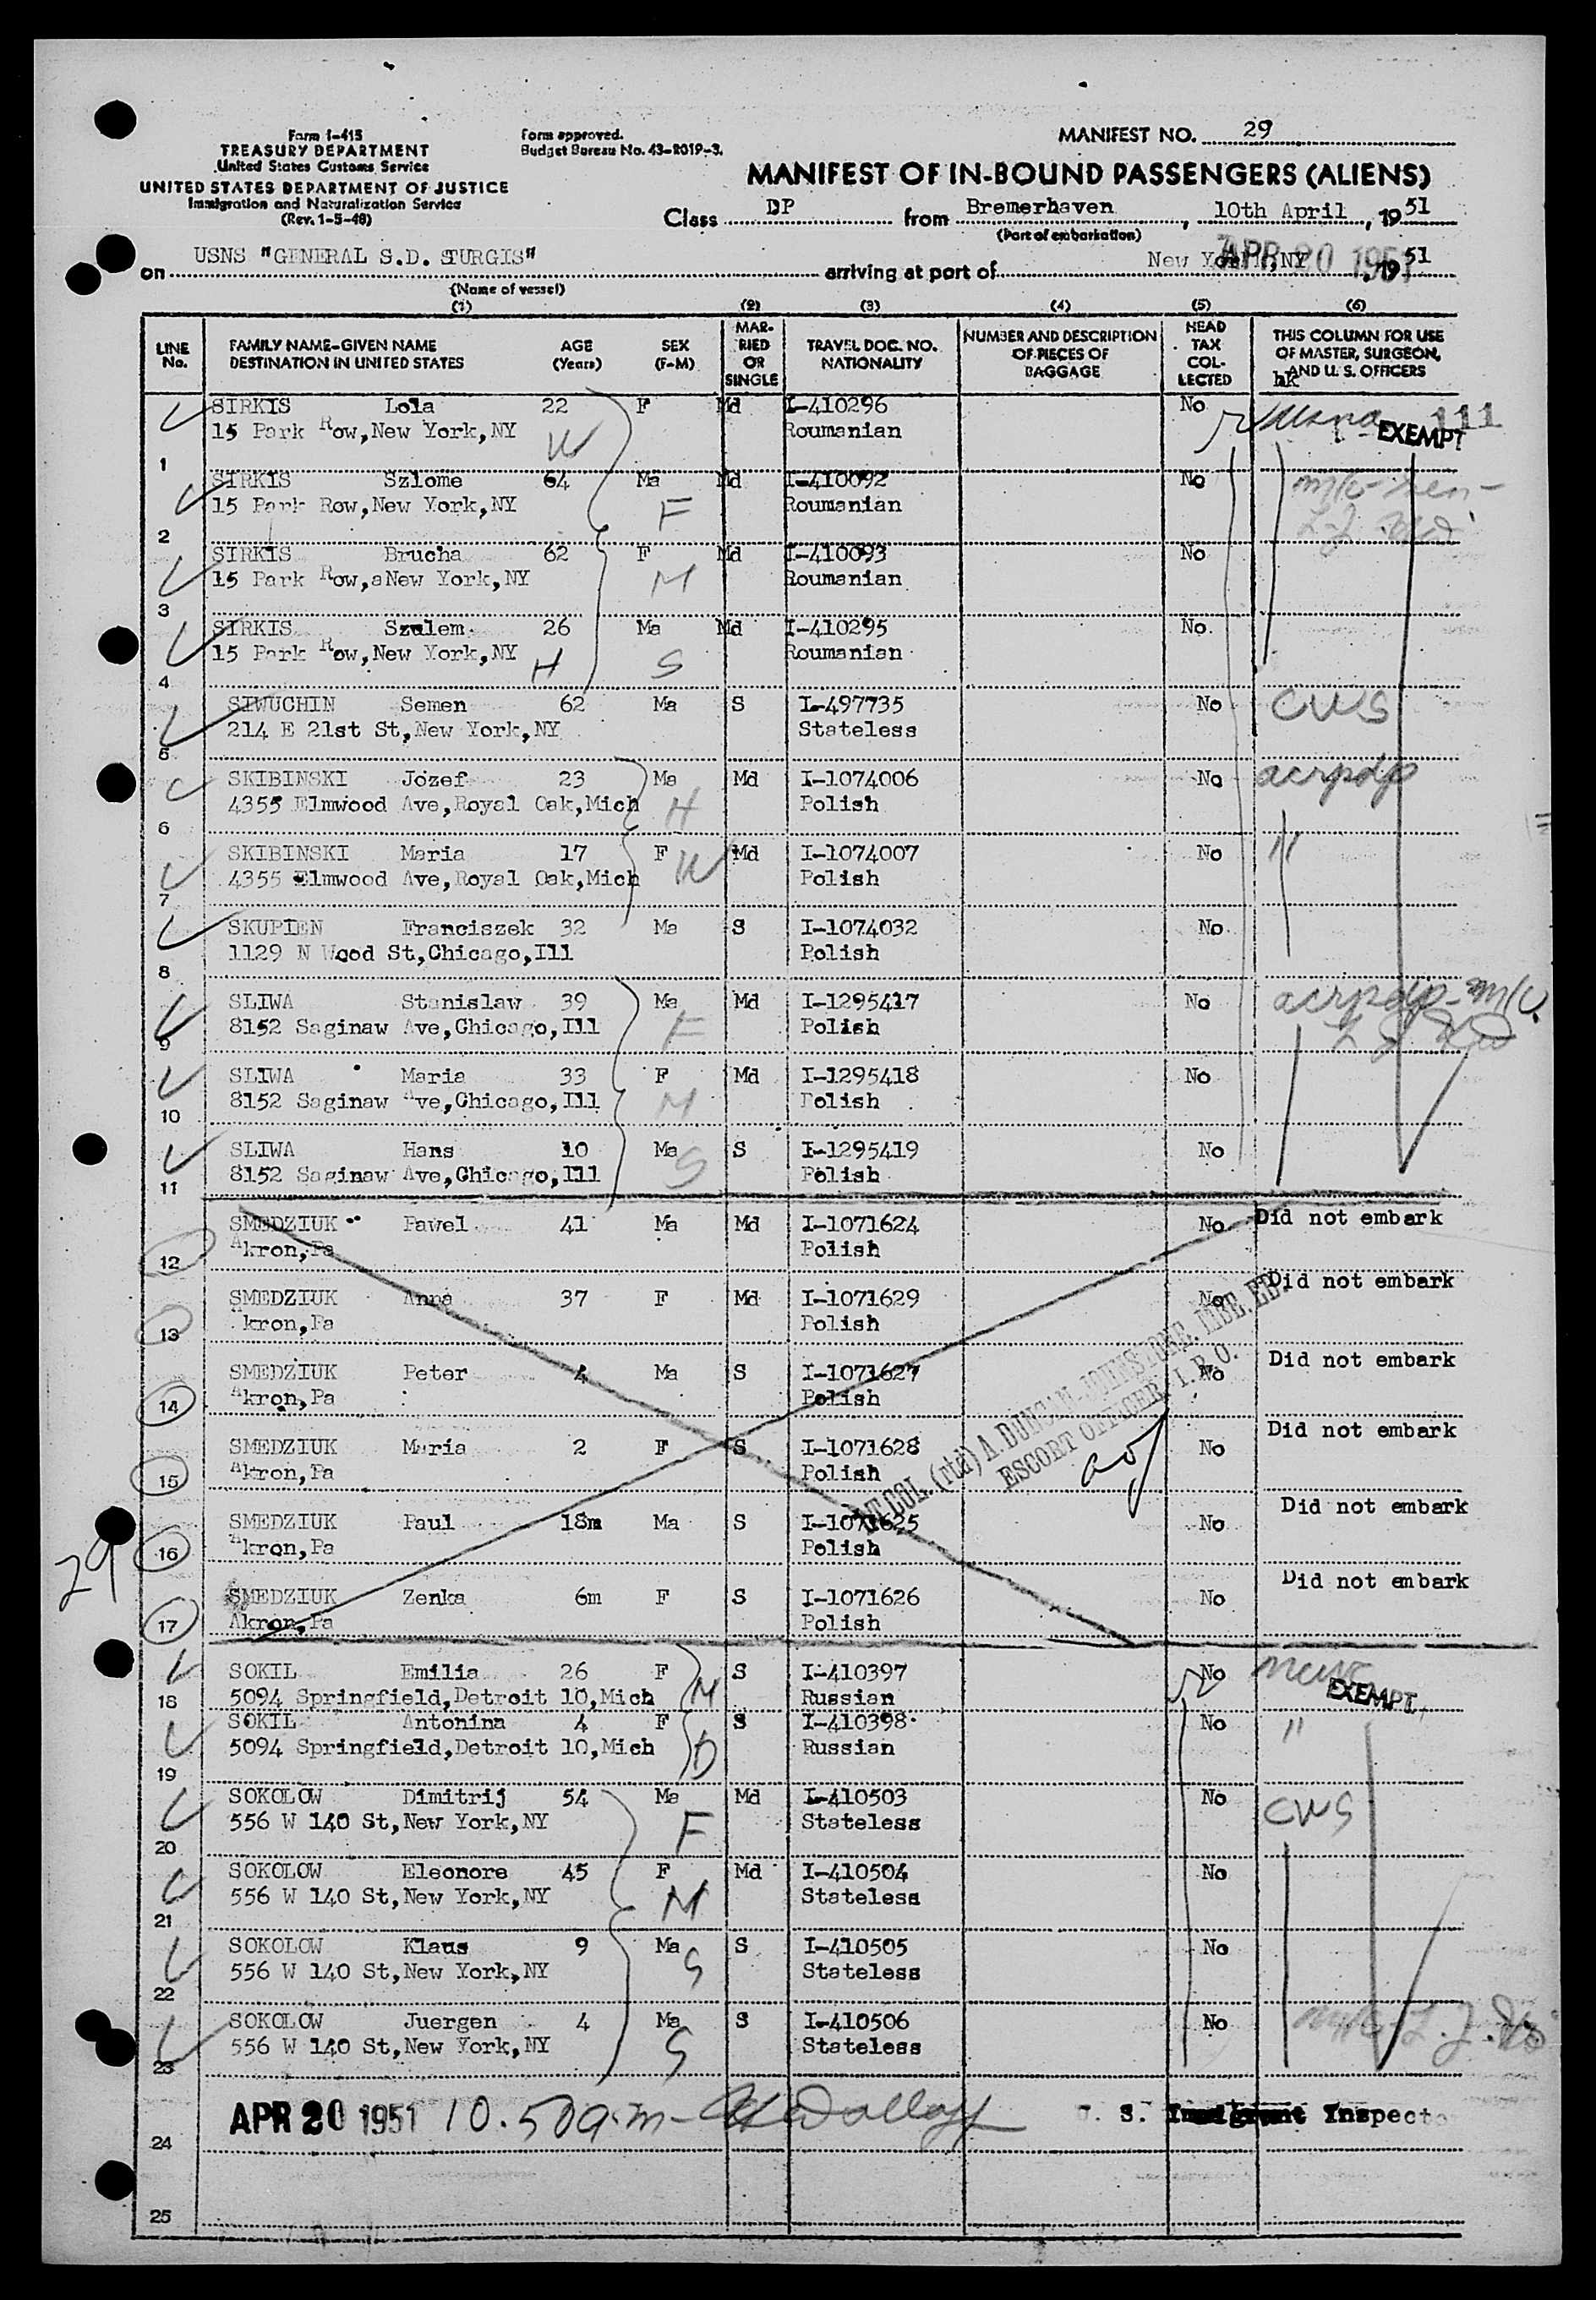 Form I-415
TREASURY DEPARTMENT
United States Customs Service
UNITED STATES DEPARTMENT OF JUSTICE
Immigration and Naturalization Service
(Rev. 1-5-48)
Form approved.
Budget Bureau No. 43-R019-3.
MANIFEST NO. 29
MANIFEST OF IN-BOUND PASSENGERS (ALIENS)
Class DP from Bremerhaven, 10th April, 1951
(Port of embarkation)
on USNS "GENERAL S.D. STURGIS" arriving at port of New York, NY APR 20 1951, 1951
(Name of vessel)
(1) (2) (3) (4) (5) (6)
LINE No. FAMILY NAME-GIVEN NAME DESTINATION IN UNITED STATES AGE (Years) SEX (F-M) MARRIED OR SINGLE TRAVEL DOC. NO. NATIONALITY NUMBER AND DESCRIPTION OF PIECES OF BAGGAGE HEAD TAX COLLECTED THIS COLUMN FOR USE OF MASTER, SURGEON, AND U. S. OFFICERS
SIRKIS Lola 22 F Md I-410296 No EXEMPT 111
15 Park Row,New York,NY W Roumanian
1
SIRKIS Szlome 64 Ma Md I-410092 No
15 Park Row,New York,NY F Roumanian
2
SIRKIS Brucha 62 F Md I-410093 No
15 Park Row,aNew York,NY M Roumanian
3
SIRKIS Szulem 26 Ma Md I-410295 No
15 Park Row,New York,NY H S Roumanian
4
SIWUCHIN Semen 62 Ma S I-497735 No CWS
214 E 21st St,New York,NY Stateless
5
SKIBINSKI Jozef 23 Ma Md I-1074006 No acrpdp
4355 Elmwood Ave,Royal Oak,Mich H Polish
6
SKIBINSKI Maria 17 F W Md I-1074007 No "
4355 Elmwood Ave,Royal Oak,Mich Polish
7
SKUPIEN Franciszek 32 Ma S I-1074032 No
1129 N Wood St,Chicago,Ill Polish
8
SLIWA Stanislaw 39 Ma Md I-1295417 No acrpdp-m/c
8152 Saginaw Ave,Chicago,Ill F Polish
9
SLIWA Maria 33 F Md I-1295418 No
8152 Saginaw Ave,Chicago,Ill M Polish
10
SLIWA Hans 10 Ma S I-1295419 No
8152 Saginaw Ave,Chicago,Ill S Polish
11
SMEDZIUK Pawel 41 Ma Md I-1071624 No Did not embark
Akron,Pa Polish
12
SMEDZIUK Anna 37 F Md I-1071629 No Did not embark
Akron,Pa Polish
13
SMEDZIUK Peter 4 Ma S I-1071627 No Did not embark
Akron,Pa Polish
14
SMEDZIUK Maria 2 F S I-1071628 No Did not embark
Akron,Pa Polish
15
SMEDZIUK Paul 18m Ma S I-1071625 No Did not embark
Akron,Pa Polish
16
SMEDZIUK Zenka 6m F S I-1071626 No Did not embark
Akron,Pa Polish
17
LT.COL. (rtd) A. DUNCAN-JOHNSTONE, MBE, ED.
ESCORT OFFICER, I.R.O.
29
SOKIL Emilia 26 F S I-410397 No EXEMPT
5094 Springfield,Detroit 10,Mich M Russian
18
SOKIL Antonina 4 F S I-410398 No "
5094 Springfield,Detroit 10,Mich D Russian
19
SOKOLOW Dimitrij 54 Ma Md I-410503 No CWS
556 W 140 St,New York,NY F Stateless
20
SOKOLOW Eleonore 45 F Md I-410504 No
556 W 140 St,New York,NY M Stateless
21
SOKOLOW Klaus 9 Ma S I-410505 No
556 W 140 St,New York,NY S Stateless
22
SOKOLOW Juergen 4 Ma S I-410506 No
556 W 140 St,New York,NY S Stateless
23
APR 20 1951 10.50a.m- U. S. Immigrant Inspector
24
25